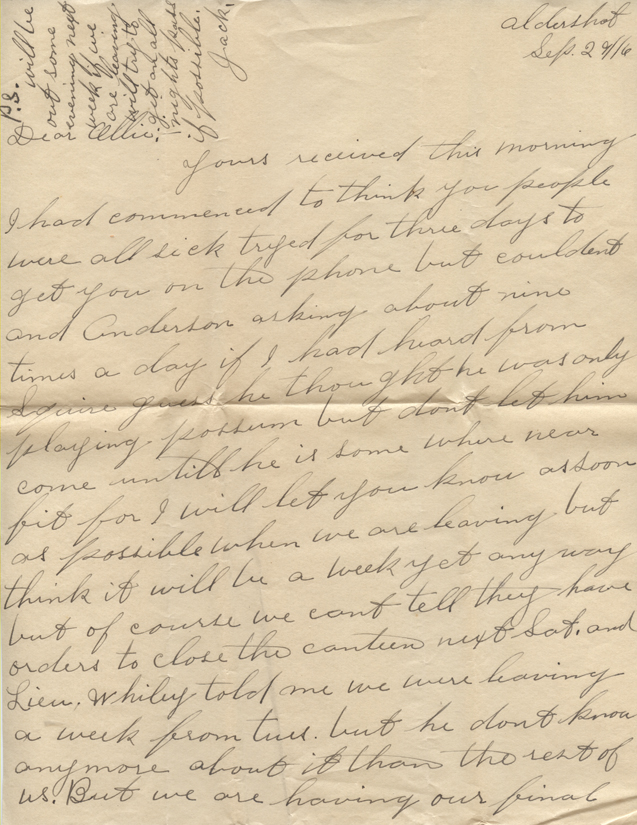 aldershot
Sep. 29/16
P.S. will be
out some
evening next
week if we
are leaving
will try to
get an all
nights pass
if possible.
Jack.
Dear Allie:
Yours received this morning
I had commenced to think you people
were all sick tryed for three days to
get you on the phone but couldent
and Anderson asking about nine
times a day if I had heard from
Squire guess he thought he was only
playing possum but dont let him
come untill he is some where near
fit for I will let you know assoon
as possible when we are leaving but
think it will be a week yet any way
but of course we cant tell they have
orders to close the canteen next Sat. and
Lieu. Whiley told me we were leaving
a week from tues. but he dont know
anymore about it than the rest of
us. But we are having our final